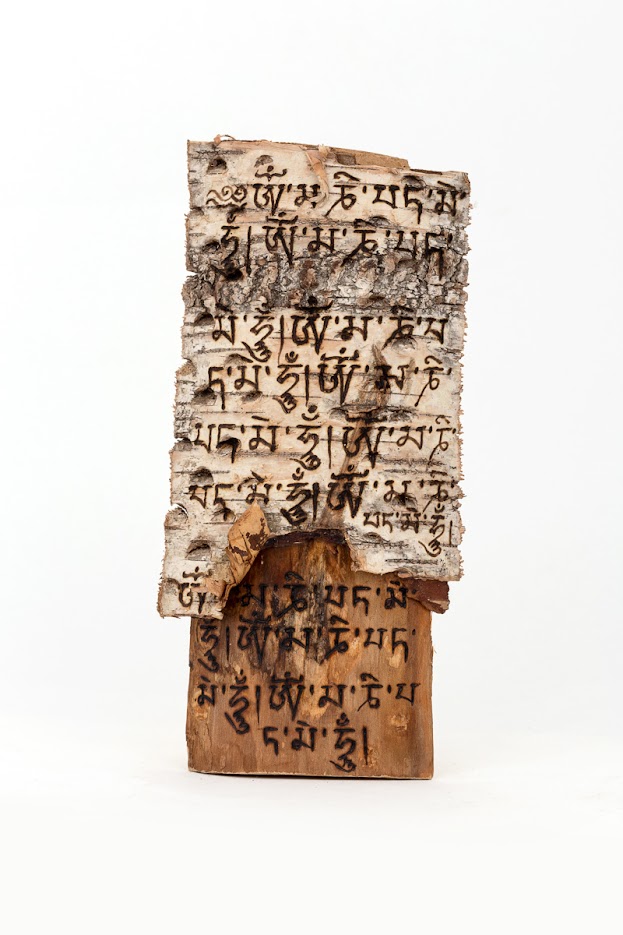 ༄༅ཨོཾ་མ་ཎི་པད་མེ་
ཧཱུྃ།ཨོཾ་མ་ཎི་པད་
མེ་ཧཱུྃ།ཨོཾ་མ་ཎི་པ
ད་མེ་ཧཱུྃ།ཨོཾ་མ་ཎི་
པད་མེ་ཧཱུྃ།ཨོཾ་མ་ཎི་
པད་མེ་ཧཱུྃ།ཨོཾ་མ་ཎི་
པད་མེ་ཧཱུྃ།
ཨོཾ་མ་ཎི་པད་མེ་
ཧཱུྃ།ཨོཾ་མ་ཎི་པད་
མེ་ཧཱུྃ།ཨོཾ་མ་ཎི་པ
ད་མེ་ཧཱུྃ།